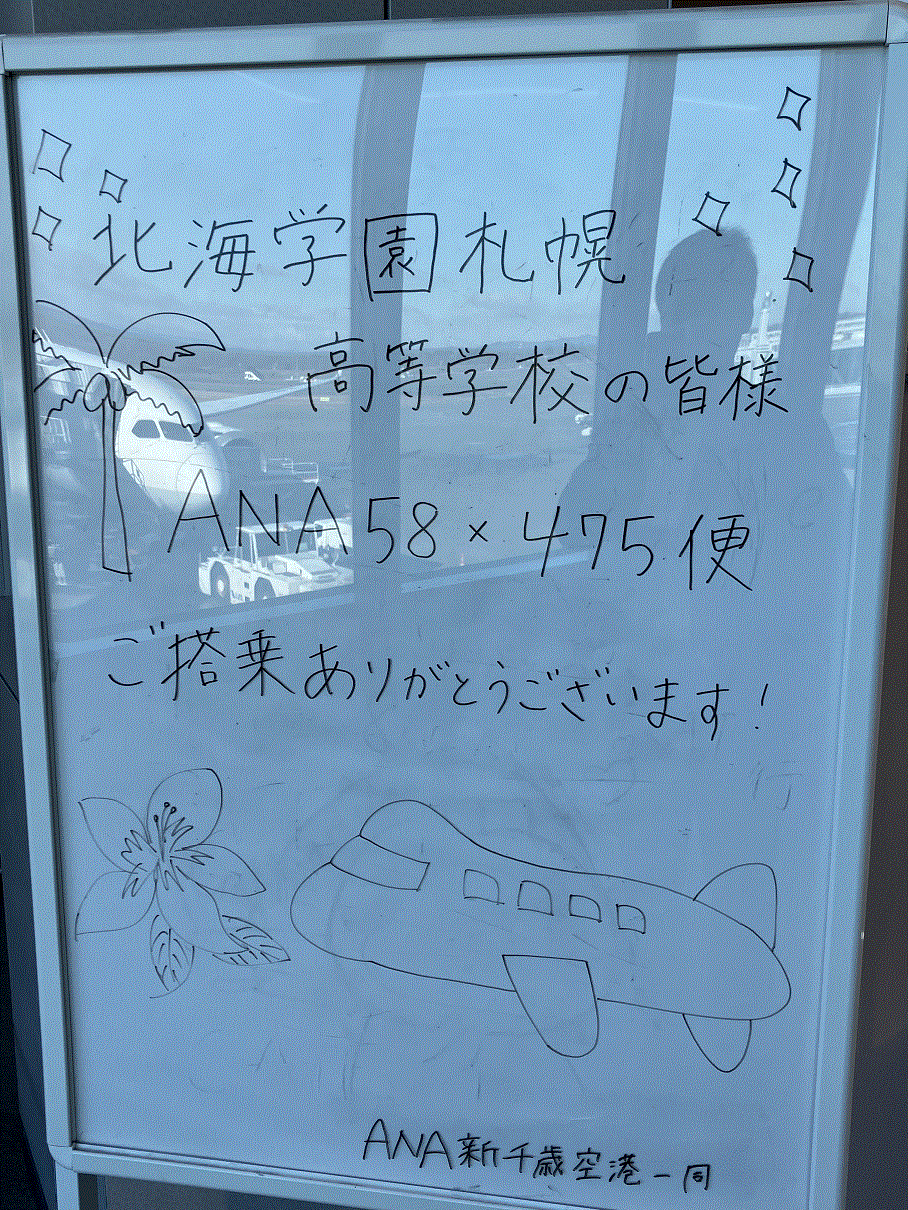 北海学園札幌
高等学校の皆様
ANA58×475便
ご搭乗ありがとうございます!
ANA新千歳空港一同